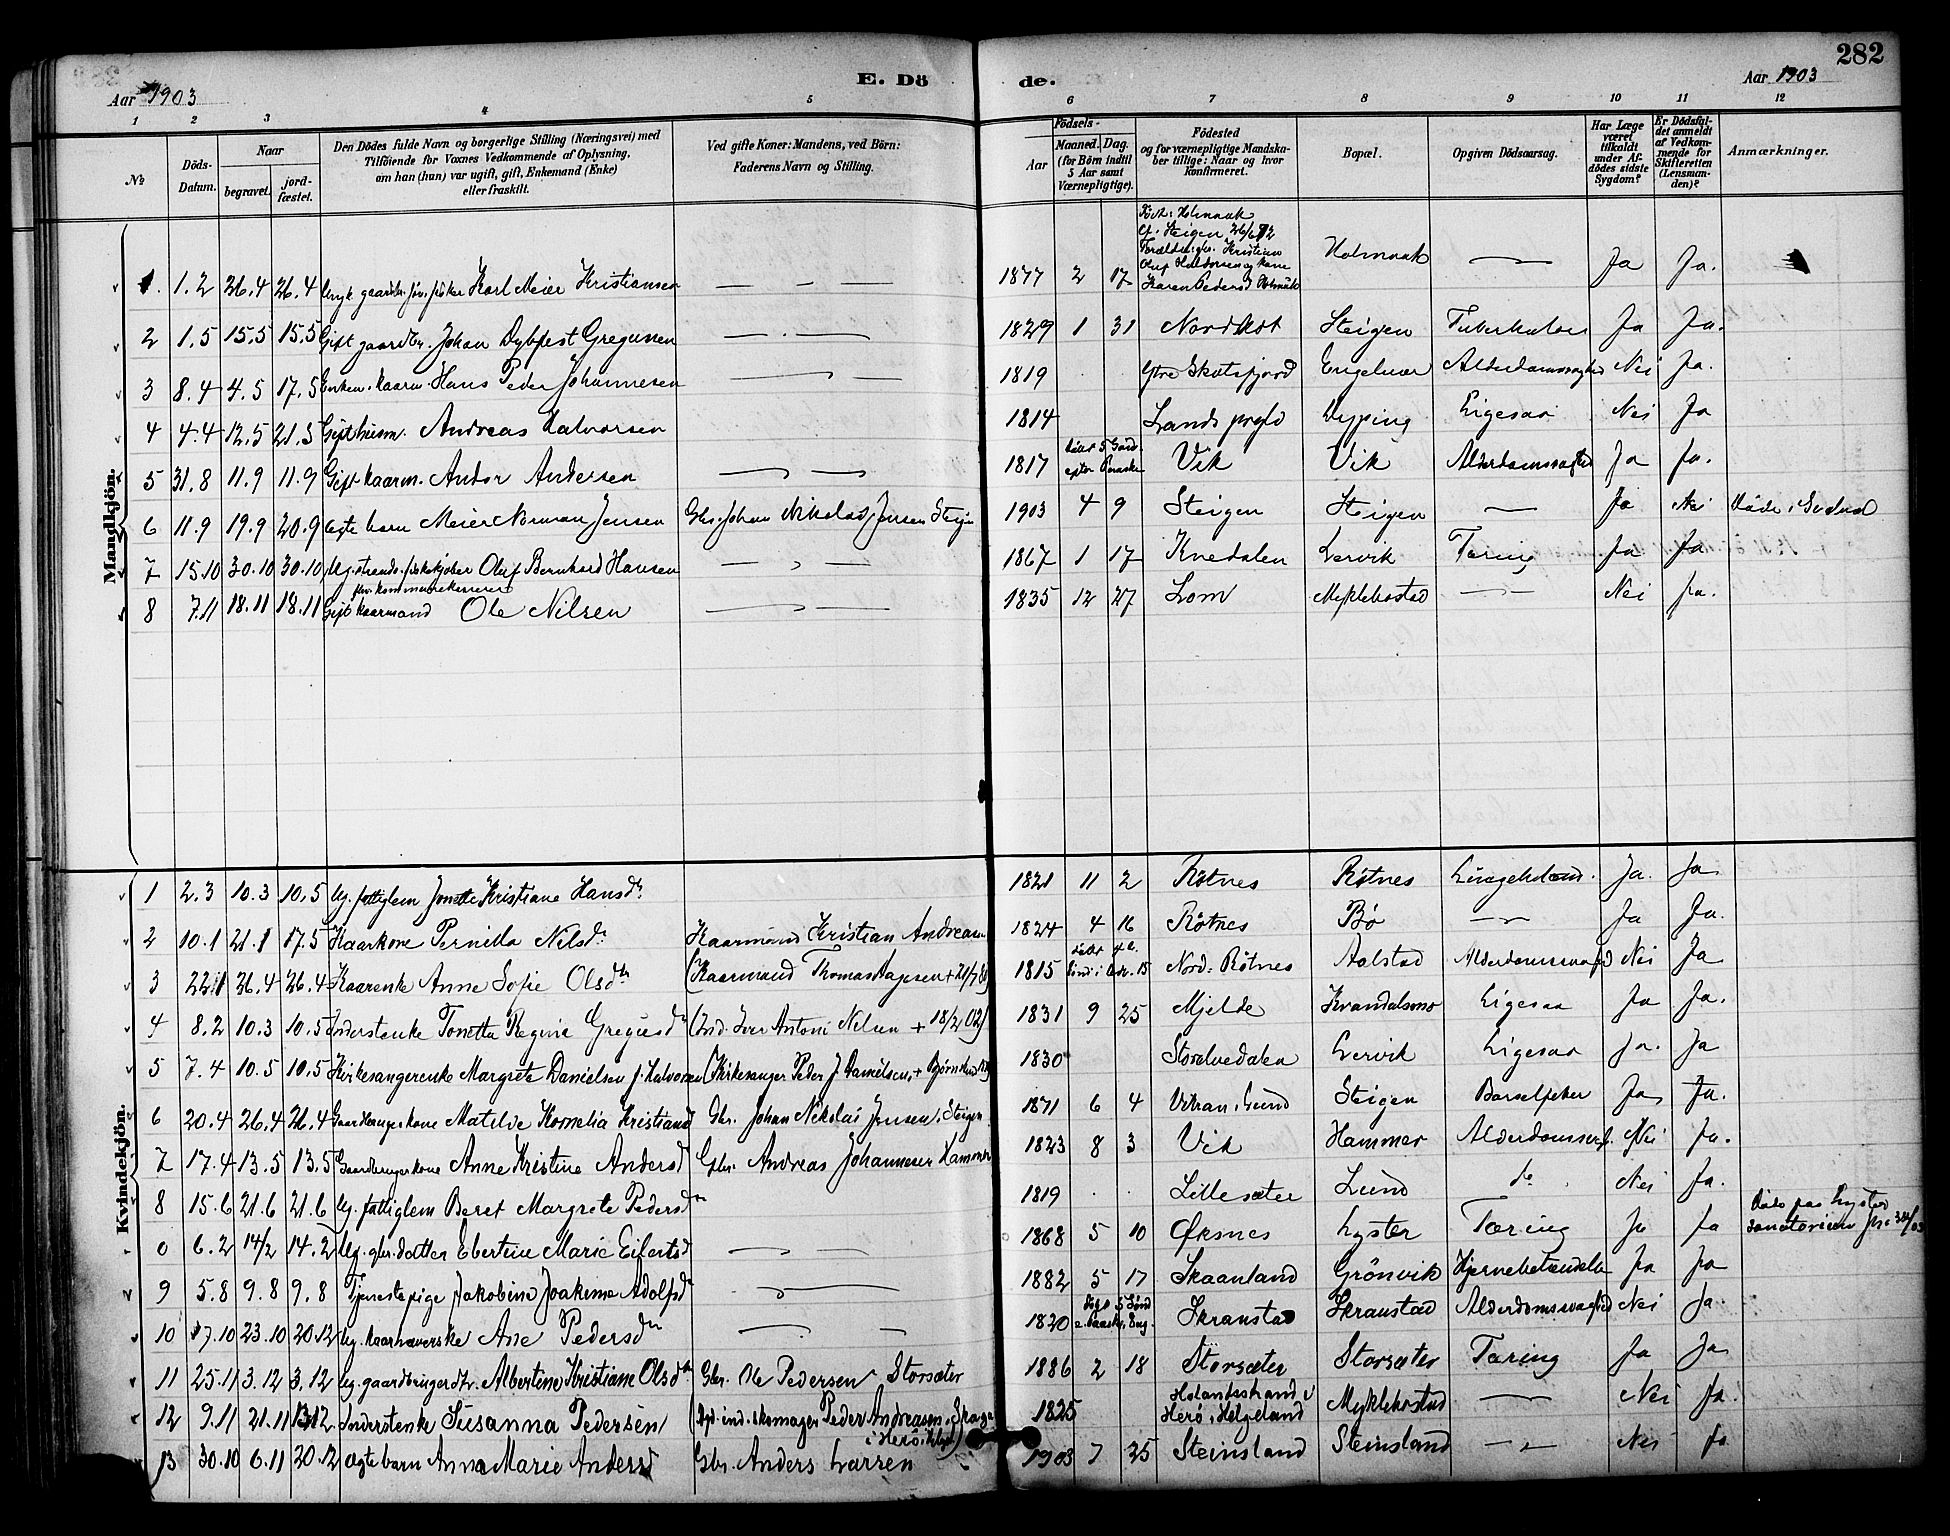 282
Aar 1903
E. Dö
de.
Aar 1903
1 2 3 4 5 6 7 8 9 10 11 12
№
Döds-Datum.
Naar
begravet.
jord-fæstet.
Den Dödes fulde Navn og borgerlige Stilling (Næringsvei) med
Tilföiende for Voxnes Vedkommende af Oplysning,
om han (hun) var ugift, gift, Enkemand (Enke)
eller fraskilt.
Ved gifte Koner: Mandens, ved Börn:
Faderens Navn og Stilling.
Födsels-
Aar
Maaned. Dag.
(for Börn indtil
5 Aar samt
Værnepligtige).
Födested
og for værnepligtige Mandska-
ber tillige: Naar og hvor
konfirmeret.
Bopæl.
Opgiven Dödsaarsag.
Har Læge
været
tilkaldt
under Af-
dödes sidste
Sygdom?
Er Dödsfal-
det anmeldt
af Vedkom-
mende for
Skifteretten
(Lensman-
den)?
Anmærkninger.
Mandkjön.
1. 1.2 26.4 26.4 Karl Meier Kristiansen 1877 2 17 Holmaak Ja Ja.
2 1.5 15.5 15.5 Gift gaardbr. Johan Dybfest Gregusen 1829 1 31 Nordskot Steigen Tuberkulose Ja Ja.
3 8.4 4.5 17.5 Enkem. kaarm. Hans Peder Johannesen 1819 Ytre Skotsfjord Engelvær Alderdomssvaghed Nei Ja.
4 4.4 12.5 21.5 Gift husm. Andreas Halvorsen 1814 Lands prgld Nyping Ligesaa Nei Ja
5 31.8 11.9 11.9 Gift kaarm. Andor Andersen 1817 Vik Vik Alderdomssvaghed Ja Ja.
6 11.9 19.9 20.9 ægte barn Meier Norman Jensen Gbr. Johan Nikolai Jensen Steigen 1903 4 9 Steigen Steigen Ja Nei
7 15.10 30.10 30.10 Ug. strands. fiskekjøber Oluf Bernhard Hansen 1867 1 17 Knedalen Lervik Tæring Ja Ja
8 7.11 18.11 18.11 Gift kaarmand Ole Nilsen 1835 12 27 Lom Myklebostad Nei Ja.
Kvindekjön.
1 2.3 10.3 10.5 Ug. fattiglem Jonette Kristiane Hansdr 1821 11 2 Røtnes Røtnes Ja. Ja
2 10.1 21.1 17.5 Kaarkone Pernilla Nilsdr Kaarmand Kristian Andreasen 1824 4 16 Røtnes Bø Ja Ja.
3 22.1 26.4 26.4 Kaarenke Anne Sofie Olsdtr (Kaarmand Thomas Hagesen + 21/7 81) 1815 Nord: Røtnes Aalstad Alderdomssvaghed Nei Ja
4 8.2 10.3 10.5 Inderstenke Tonetta Regine Gregusdr (Ind. Iver Antoni Nilsen + 18/2 02) 1831 9 25 Mjelde Kvandalsmo Ligesaa Ja Ja.
5 7.4 10.5 10.5 Kirkesangerenke Margrete Danielsen f. Halvorsen (Kirkesanger Peder J. Danielsen, + 1830 Storelvedalen Lervik Ligesaa Ja. Ja
6 20.4 26.4 26.4 Gaardbrugerkone Matilde Kornelia Kristiansd Gbr. Johan Nikolai Jensen, Steigen 1871 6 4 Steigen Barselfeber Ja Ja.
7 17.4 13.5 13.5 Gaardbrugerkone Anne Kristine Andersd Gbr. Andreas Johannesen Hammer 1823 8 3 Vik Hammer Alderdomssvagh. Nei Ja.
8 15.6 21.6 21.6 Ug. fattiglem Beret Margrete Pedersdr 1819 Lillesæter Lund do Nei Ja.
0 6.2 14/2 14.2 Ug. gbr. datter Ebertine Marie Eifertsd 1868 5 10 Øksnes Lyster Tæring Ja Ja Døde paa Lyster sanatorium
9 5.8 9.8 9.8 Tjenestepige Jakobine Joakime Adolfsdr 1882 5 17 Skaanland Grönvik Hjernebetændelse Ja Ja
10 17.10 23.10 20.12 Ug. kaarhaverske Ane Pedersdr 1820 Skranstad Skranstad Alderdomssvaghed Nei Ja.
11 25.11 3.12 3.12 Ug. gaardbrugerdtr. Albertine Kristiane Olsdtr Gbr. Ole Pedersen Storsæter 1886 2 18 Storsæter Storsæter Tæring Ja Ja
12 9.11 21.11 13.12 Inderstenke Susanna Pedersen (Afd. ind. skomager Peder Andreasen, i Herö 1825 Herø i Helgeland Myklebostad Nei Ja.
13 30.10 6.11 20.12 ægte barn Anna Marie Andersd Gbr. Anders Larsen 1903 7 25 Steinsland Steinsland Nei Ja